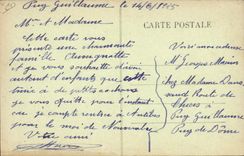 Puy Guillaume le 14/6/1915
CARTE POSTALE
Mr et Madame
Cette carte vous
présente une charmante
famille
et je vous souhaite d'ici
autant d'enfants que cette
à de petits cochons
je vous quitte pour l'instant
car je compte rentrer à Antibes
pour le mois de Novembre
Votre ami
Voici mon adresse
Mr Georges Marin
chez Madame
Route de
Puy Guillaume
Puy de Dôme